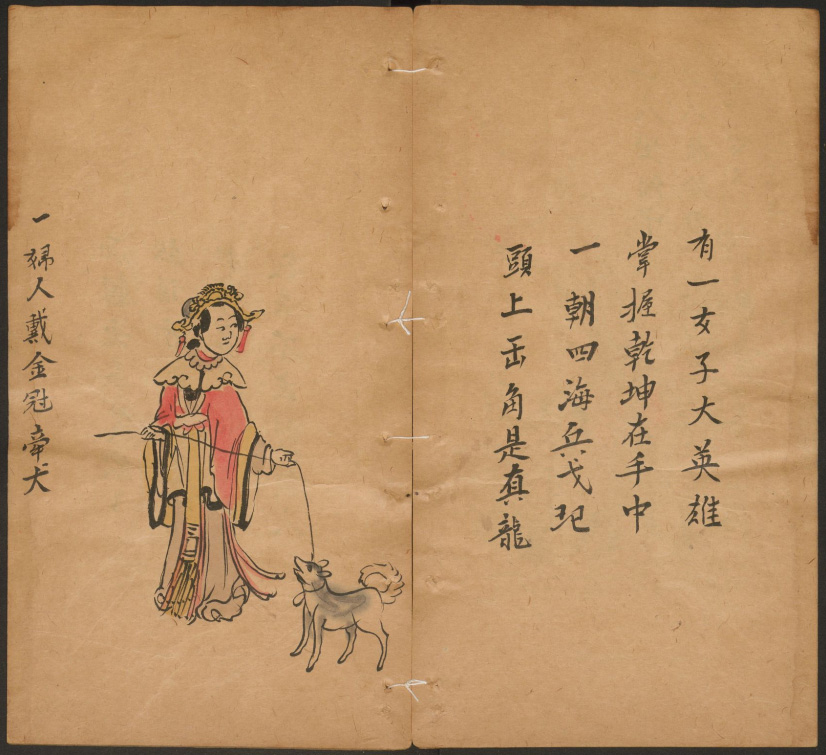 有一女子大英雄
掌握乾坤在手中
一朝四海兵戈
頭上缶角是真龍
一婦人戴金冠牽犬